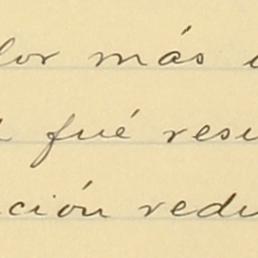 lor más
fué resu
ción redu